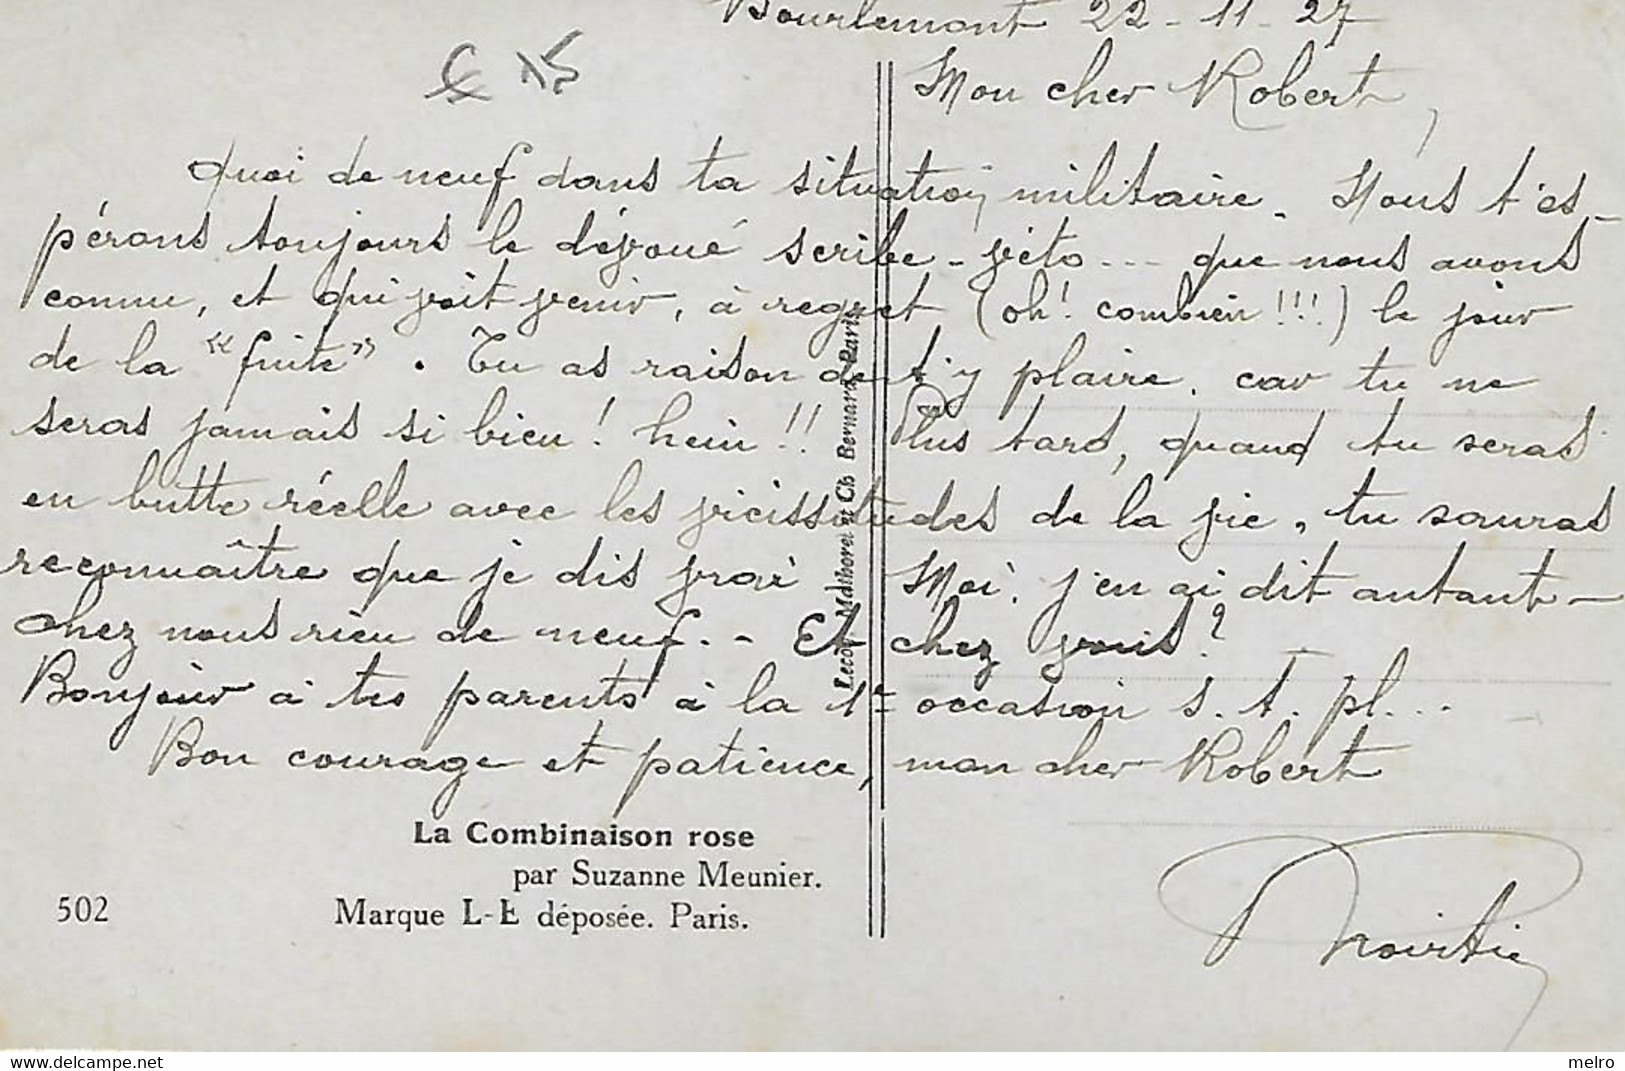 Bourlemont 22-11-27
Mon cher Robert,
Quoi de neuf dans ta situation militaire. Nous t'es-
pérons toujours le dévoué scribe-véto... que nous avons
connu, et qui voit venir, à regret (oh! combien!!!) le jour
de la "fuite". Tu as raison de t'y plaire, car tu ne
seras jamais si bien! hein!! Plus tard, quand tu seras
en butte réelle avec les vicissitudes de la vie, tu sauras
reconnaître que je dis vrai Moi, j'en ai dit autant-
chez nous rien de neuf.- Et chez vous?
Bonjour à tes parents à la 1e occasion s. t. pl...
Bon courage et patience, mon cher Robert
La Combinaison rose
par Suzanne Meunier.
502
Marque L-E déposée. Paris.
Bernard, Paris
melro